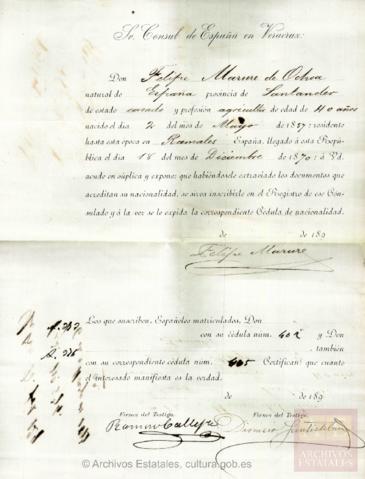 Sr. Consul de España en Veracruz:
Don Felipe Marure de Ochoa
natural de España provincia de Santander
de estado casado y profesión agricultor de edad de 40 años
nacido el dia 2 del mes de Mayo de 1857: residente
hasta esta época en Ramales España, llegado á esta Repú-
blica el dia 18 del mes de Diciembre de 1890: á Vd.
acude en súplica y expone: que habiéndosele extraviado los documentos que
acreditan su nacionalidad, se sirva inscribirle en el Registro de ese Con-
sulado y á la vez se le expida la correspondiente Cédula de nacionalidad.
de de 189
Felipe Marure
Los que suscriben, Españoles matriculados, Don
con su cédula núm. 402 y Don
también
con su correspondiente cédula núm. Certifican: que cuanto
el interesado manifiesta es la verdad.
de de 189
Firma del Testigo. Firma del Testigo.
Ramon Callejo
© Archivos Estatales, cultura.gob.es
ARCHIVOS
ESTATALES